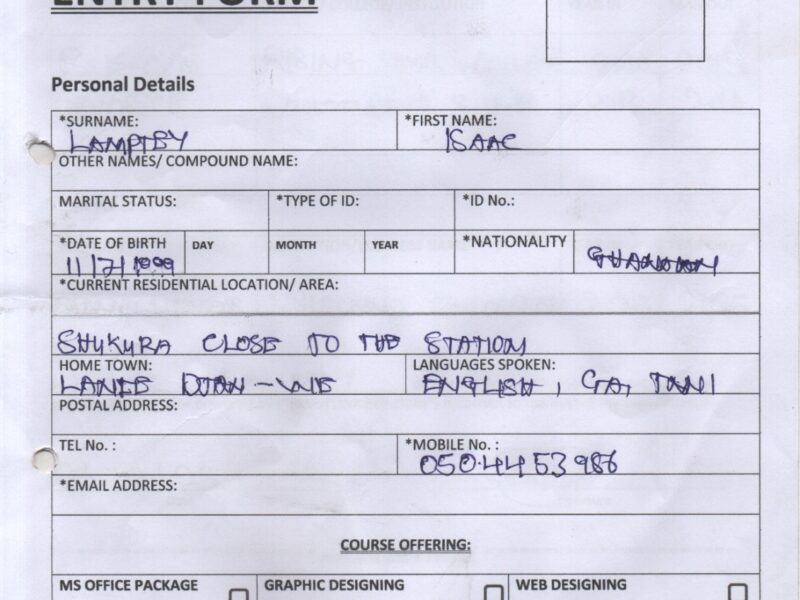 ENTRY FORM
Personal Details
*SURNAME: *FIRST NAME:
LAMPTEY ISAAC
OTHER NAMES/ COMPOUND NAME:
MARITAL STATUS: *TYPE OF ID: *ID No.:
*DATE OF BIRTH DAY MONTH YEAR *NATIONALITY
11/7/1999 GHANAIAN
*CURRENT RESIDENTIAL LOCATION/ AREA:
SHUKURA CLOSE TO THE STATION
HOME TOWN: LANGUAGES SPOKEN:
ENGLISH, GA, TWI
POSTAL ADDRESS:
TEL No. : *MOBILE No. :
050.4453986
*EMAIL ADDRESS:
COURSE OFFERING:
MS OFFICE PACKAGE GRAPHIC DESIGNING WEB DESIGNING